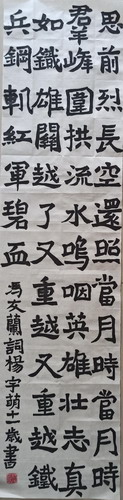 思前烈長空還照當月時當月時
羣峰圍拱流水嗚咽英雄壯志真
如鐵雄關越了又重越又重越鐵
兵鋼軌紅軍碧血
馮友蘭詞楊宇萌十一歲書